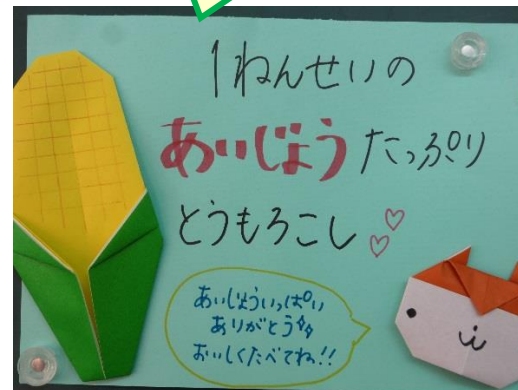 1ねんせいの
あいじょうたっぷり
とうもろこし♡♡
あいじょういっぱい
ありがとう
おいしくたべてね!!